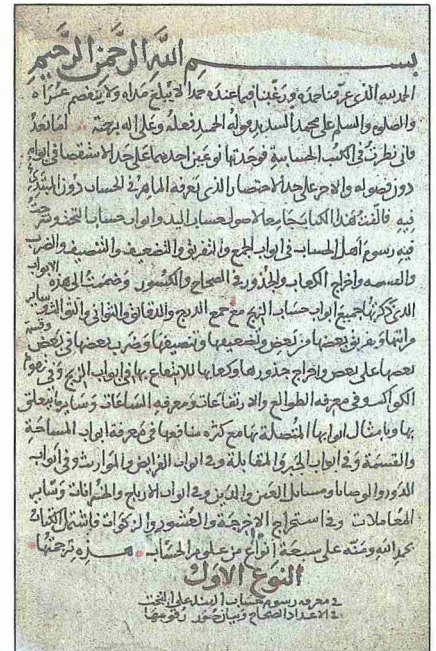 بسم الله الرحمن الرحيم
الحمد لله الذى عرفنا حمده ورغبنا فيما عنده حمدا لا يبلغ مداه ولا
والصلوه والسلم على محمد وعلى اله برحمته اما بعد
فانى نظرت فى الكتب الحسابية فوجدتها نوعين احدهما على حد الاستقصا فى ابوابه
دون فضوله والاخر على حد الاختصار الذى يعرفه الماهر فى الحساب دون المبتدى
فيه فالفت هذا الكتاب جامعا لاصول حساب اليد وابواب حساب التخت وشرحت
فيه رسوم اهل الحساب فى ابواب الجمع والتفريق والتضعيف والتنصيف والضرب
والقسمه واخراج الكعاب والجذور فى الصحاح والكسور وضممت الى هذه الابواب
الذى ذكرتها جميع ابواب حساب الزيج مع جمع الدرج والدقايق والثوانى والثوالث وساير
مراتبها وتفريق بعضها من بعض وتضعيفها وتنصيفها وضرب بعضها فى بعض وقسمة
بعضها على بعض واخراج جذورها وكعابها للانتفاع بها فى ابواب الزيج وفى تقويم
الكواكب وفى معرفه الطوالع والارتفاعات ومعرفه المسافات وساير ما يتعلق
بها وبامثال ابوابها المتصلة بها مع كثره منافعها فى معرفة ابواب المساحة
والقسمة وفى ابواب الجبر والمقابلة وفى ابواب الفرايض والمواريث وفى ابواب
الدور والوصايا ومسائل العين والدين وفى ابواب الارباح والخسرانات وساير
المعاملات وفى استخراج والعشور والزكوات فاشتمل الكتاب
بحمد الله ومنه على سبعة انواع من علوم الحساب هذه ترجمتها
النوع الاول
فى معرفه رسوم حساب الهند على التخت
فى الاعداد الصحاح وبيان صور رقومها